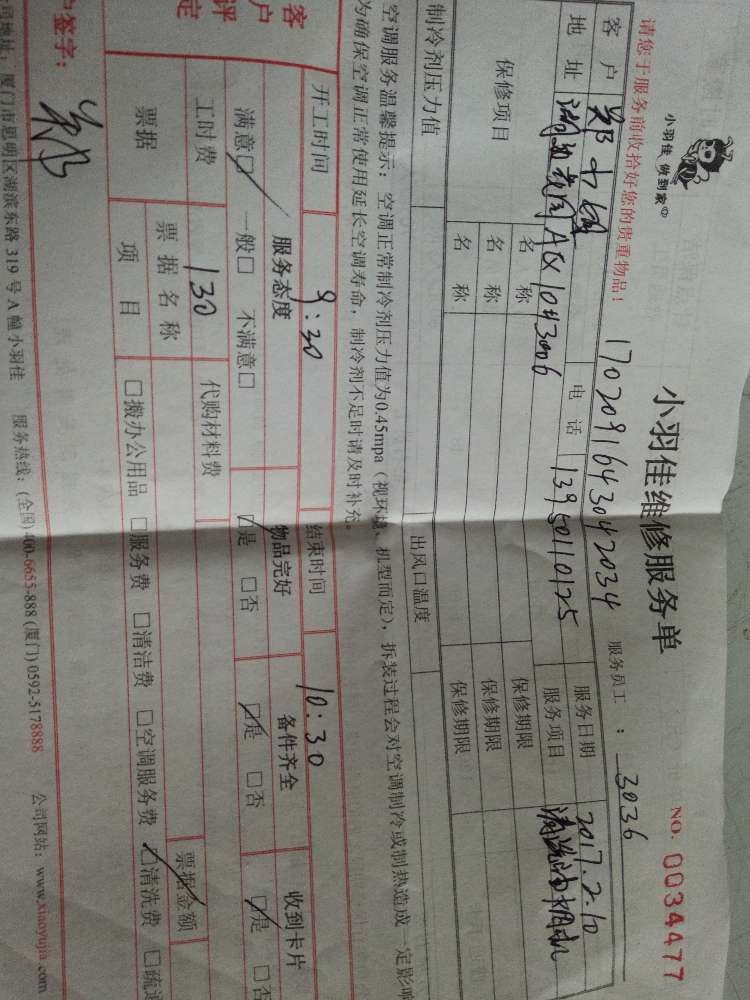 小羽佳 做到家
小羽佳维修服务单
NO. 0034477
请您于服务前收拾好您的贵重物品！
1702091643042034
服务员工 ： 3036
客户 电话 13950110125 服务日期 2017.2.10
地址 A区1043006 服务项目 清洗油烟机
保修项目 名称 保修期限
名称 保修期限
名称 保修期限
制冷剂压力值 出风口温度
空调服务温馨提示：空调正常制冷剂压力值为0.45mpa（视环境、机型而定），拆装过程会对空调制冷或制热造成一定影响
为确保空调正常使用延长空调寿命，制冷剂不足时请及时补充。
开工时间 9:30 结束时间 10:30
客户评定
服务态度 物品完好 备件齐全 收到卡片
满意☑ 一般□ 不满意□ ☑是 □否 ☑是 □否 ☑是 □否
工时费 130 代购材料费
票据 票据名称 票据金额
项目 □搬办公用品 □服务费 □清洁费 □空调服务费 ☑清洗费 □疏通
户签字：
司地址：厦门市思明区湖滨东路 319 号 A 幢小羽佳 服务热线：(全国)400-6655-888 (厦门)0592-5178888 公司网站：www.xiaoyujia.com